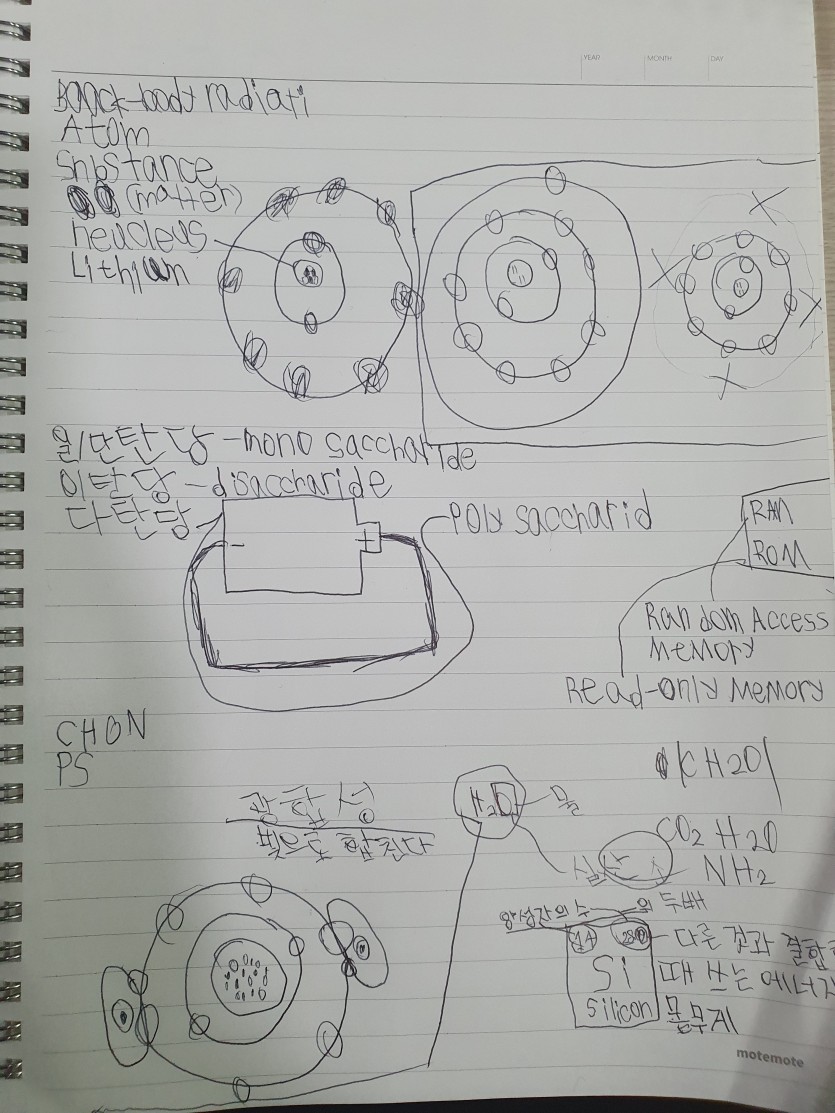 YEAR MONTH DAY
Baack-body radiati
Atom
Snbstance
(matter)
neucleus
Lithium
단탄당 - mono saccharide
이탄당 - disaccharide
다탄당
- +
Poly saccharid
RAM
ROM
Random Access
Memory
Read-only Memory
CHON
PS
광합성
빛으로 합친다
H2O
물
CH2O
CO2 H2O
NH2
양성잔의 수
의 두배
14
Si
silicon
다른 것과 결합
때 쓰는 에너지
몸무게
motemote